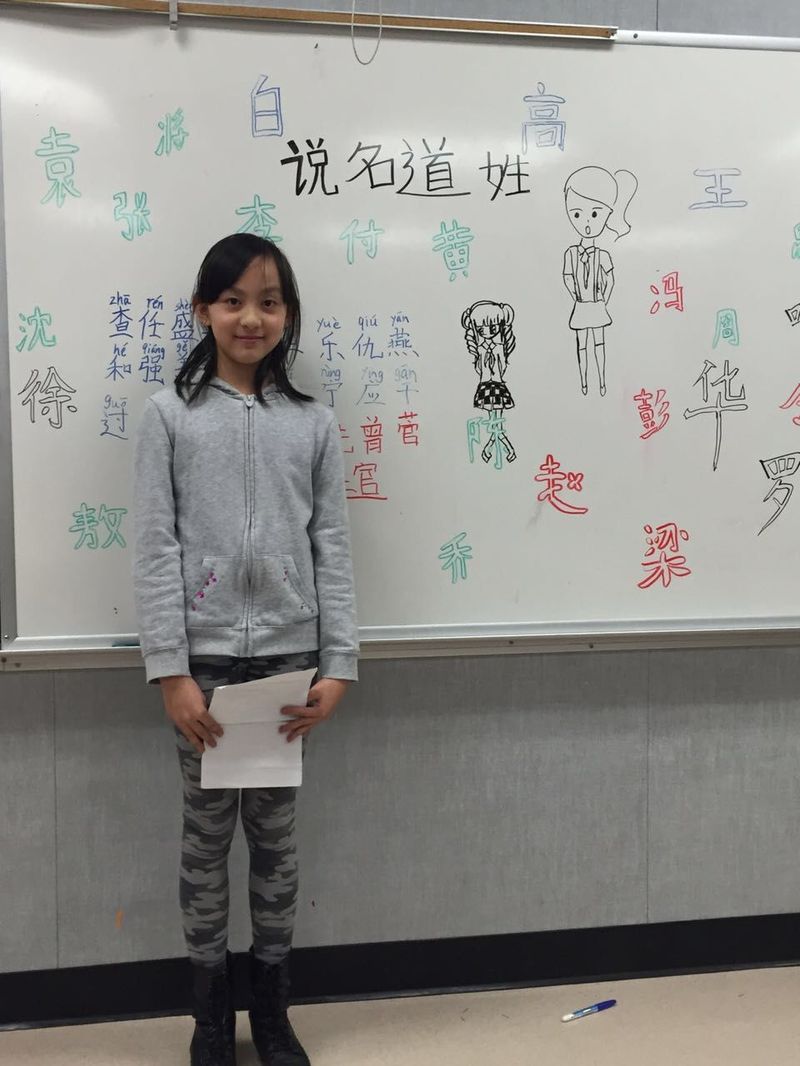 白
高
将
袁
说名道姓
王
张
李
付
黄
冯
沈
周
zhā rén
查 任 盛
yuè qiú yān
乐 仇 燕
徐
hé qiáng
和 强
华
彭
guō
过
曾 菅
陈
官
赵
罗
敖
乔
梁